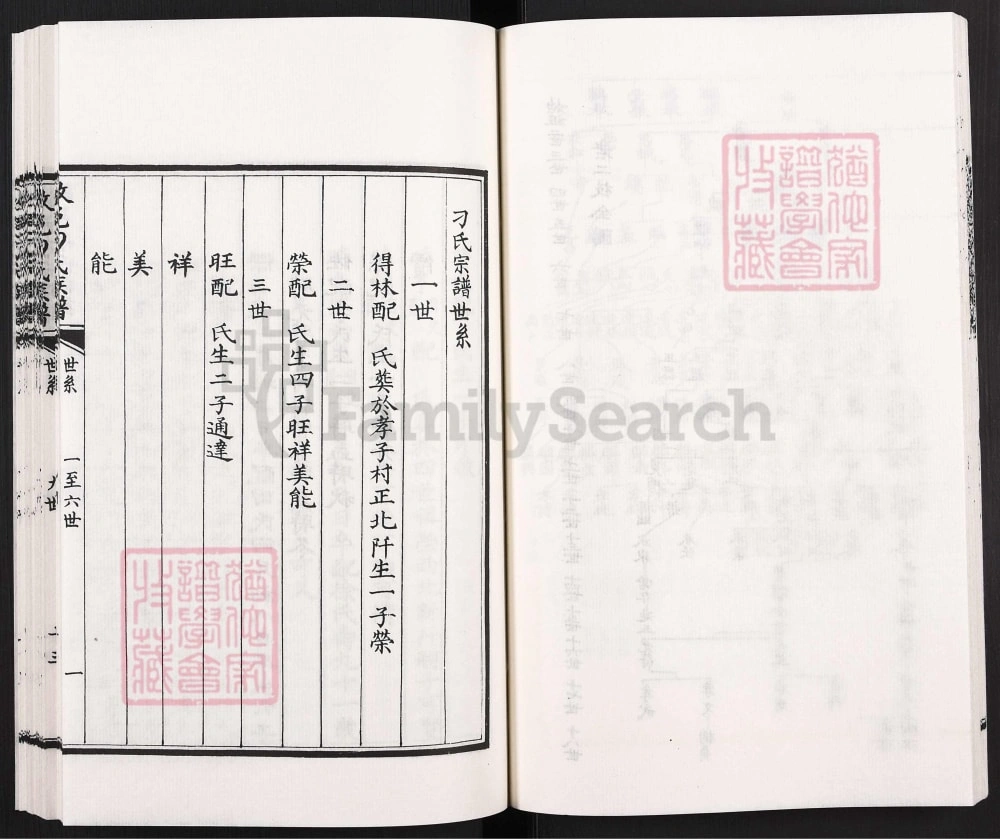 刁氏宗譜世系
一世
得林配　氏葬於孝子村正北阡生一子榮
二世
榮配　氏生四子旺祥美能
三世
旺配　氏生二子通達
祥
美
能
世系
一至六世
一
世系
FamilySearch
猶他家
譜學會
收藏
猶他家
譜學會
收藏